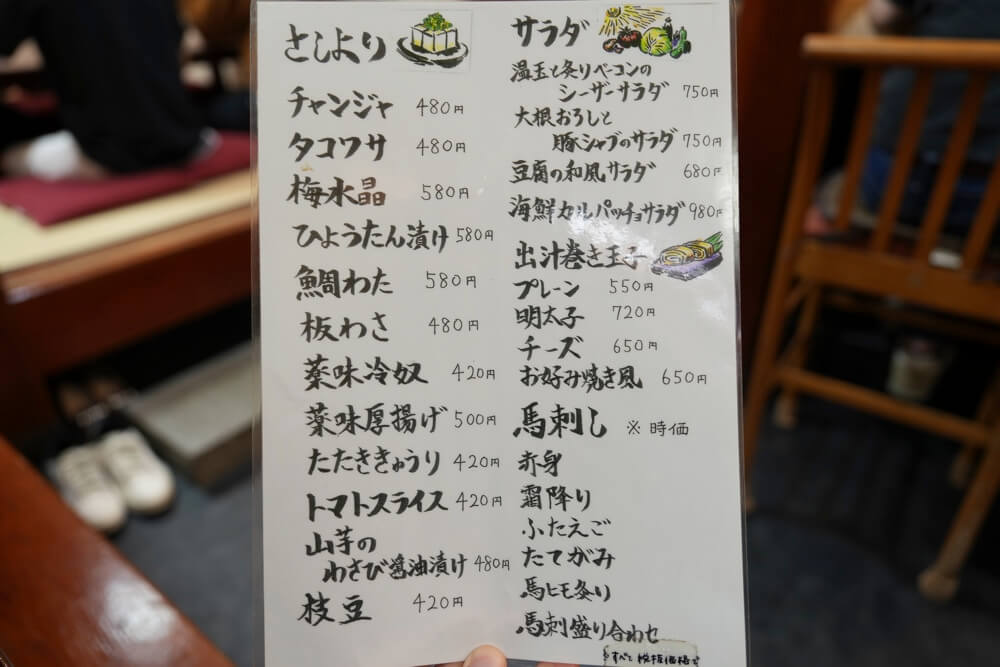 さしより
チャンジャ 480円
タコワサ 480円
梅水晶 580円
ひょうたん漬け 580円
鯛わた 580円
板わさ 480円
薬味冷奴 420円
薬味厚揚げ 500円
たたききゅうり 420円
トマトスライス 420円
山芋の
わさび醤油漬け 480円
枝豆 420円
サラダ
温玉と炙りベーコンの
シーザーサラダ 750円
大根おろしと
豚シャブのサラダ 750円
豆腐の和風サラダ 680円
海鮮カルパッチョサラダ 980円
出汁巻き玉子
プレーン 550円
明太子 720円
チーズ 650円
お好み焼き風 650円
馬刺し ※時価
赤身
霜降り
ふたえご
たてがみ
馬ヒモ炙り
馬刺盛り合わせ
すべて税抜価格